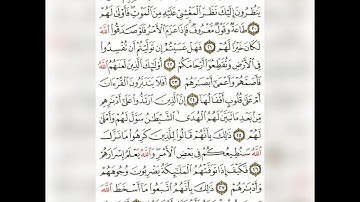 يَنظُرُونَ إِلَيْكَ نَظَرَ ٱلْمَغْشِىِّ عَلَيْهِ مِنَ ٱلْمَوْتِ فَأَوْلَىٰ لَهُمْ
٢٠ طَاعَةٌ وَقَوْلٌ مَّعْرُوفٌ فَإِذَا عَزَمَ ٱلْأَمْرُ فَلَوْ صَدَقُوا۟ ٱللَّهَ
لَكَانَ خَيْرًا لَّهُمْ ٢١ فَهَلْ عَسَيْتُمْ إِن تَوَلَّيْتُمْ أَن تُفْسِدُوا۟
فِى ٱلْأَرْضِ وَتُقَطِّعُوٓا۟ أَرْحَامَكُمْ ٢٢ أُو۟لَـٰٓئِكَ ٱلَّذِينَ لَعَنَهُمُ ٱللَّهُ
فَأَصَمَّهُمْ وَأَعْمَىٰٓ أَبْصَـٰرَهُمْ ٢٣ أَفَلَا يَتَدَبَّرُونَ ٱلْقُرْءَانَ
أَمْ عَلَىٰ قُلُوبٍ أَقْفَالُهَآ ٢٤ إِنَّ ٱلَّذِينَ ٱرْتَدُّوا۟ عَلَىٰٓ أَدْبَـٰرِهِم
مِّنۢ بَعْدِ مَا تَبَيَّنَ لَهُمُ ٱلْهُدَى ٱلشَّيْطَـٰنُ سَوَّلَ لَهُمْ وَأَمْلَىٰ
لَهُمْ ٢٥ ذَٰلِكَ بِأَنَّهُمْ قَالُوا۟ لِلَّذِينَ كَرِهُوا۟ مَا نَزَّلَ
ٱللَّهُ سَنُطِيعُكُمْ فِى بَعْضِ ٱلْأَمْرِ وَٱللَّهُ يَعْلَمُ إِسْرَارَهُمْ
٢٦ فَكَيْفَ إِذَا تَوَفَّتْهُمُ ٱلْمَلَـٰٓئِكَةُ يَضْرِبُونَ وُجُوهَهُمْ
وَأَدْبَـٰرَهُمْ ٢٧ ذَٰلِكَ بِأَنَّهُمُ ٱتَّبَعُوا۟ مَآ أَسْخَطَ ٱللَّهَ